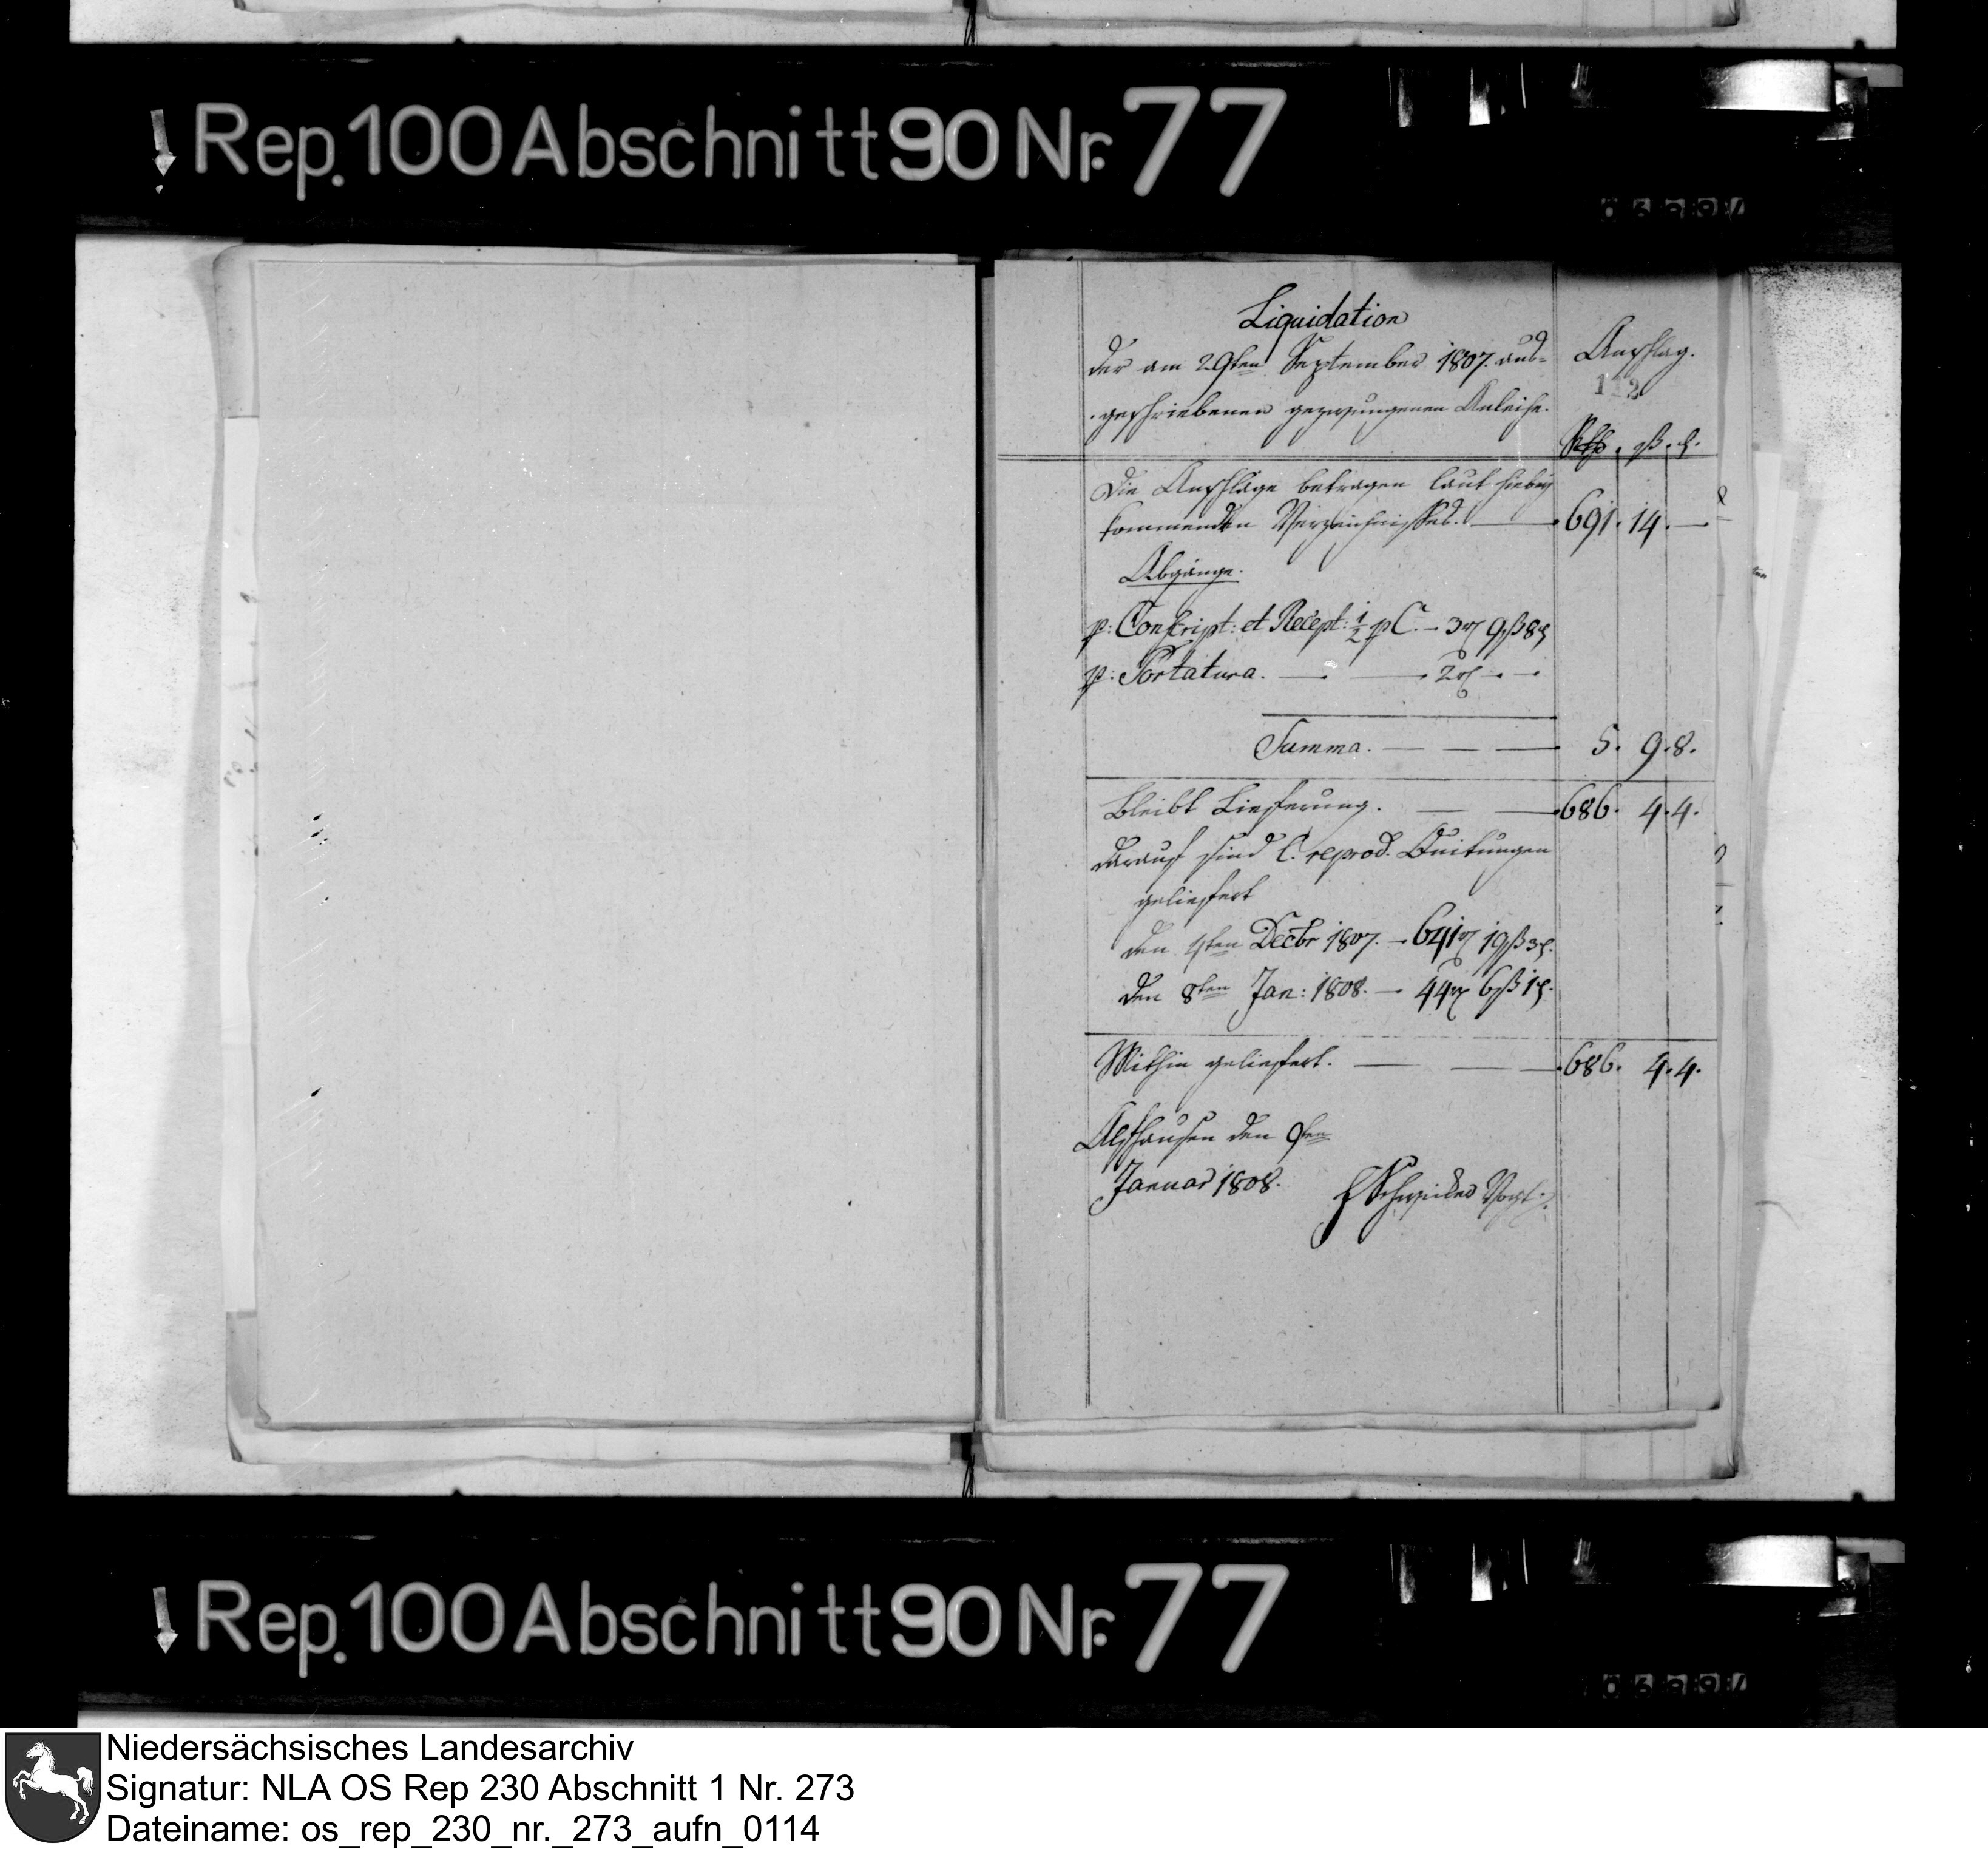 Rep. 100 Abschnitt 90 Nr. 77
Liquidation
der am 29ten September 1807. aus=
geschriebenen gezwungenen Anleihe.
Anschlag.
112
Rthlr. gß. ₰.
Die Anschläge betragen laut hiebey
kommenden Verzeichnisses. — 691. 14. —
Abgänge.
p: Conscript: et Recept: ½ pC. — 3 rt 9 gß 8 ₰
p: Portatura. — — 2 rt — —
Summa. — — — 5. 9. 8.
Bleibt Lieferung. — — 686. 4. 4.
Darauf sind l. reprod. Quitungen
geliefert
den 4ten Decbr 1807. — 641 rt 19 gß 3 ₰.
den 8ten Jan: 1808. — 44 rt 6 gß 1 ₰.
Mithin geliefert. — — — 686. 4. 4.
Alfhausen den 9ten
Januar 1808.
Schwicker Vogt.
Rep. 100 Abschnitt 90 Nr. 77
Niedersächsisches Landesarchiv
Signatur: NLA OS Rep 230 Abschnitt 1 Nr. 273
Dateiname: os_rep_230_nr._273_aufn_0114